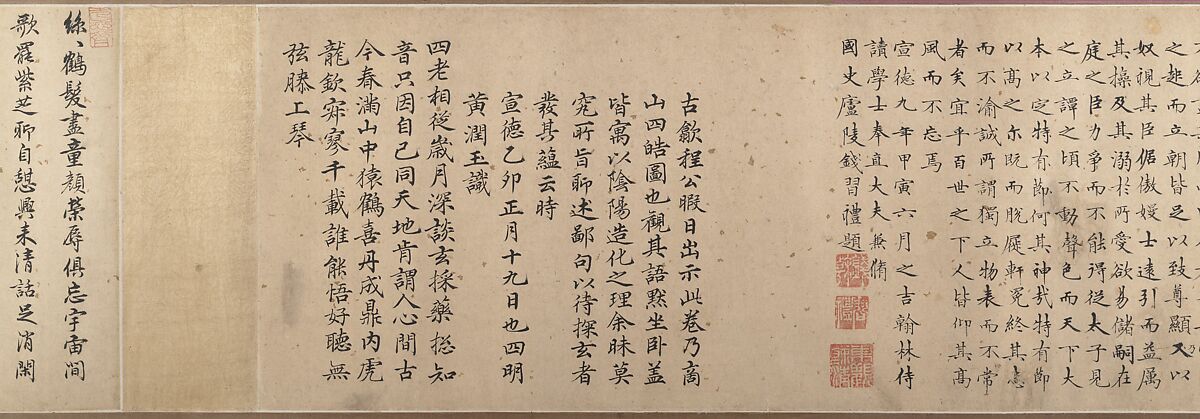 之趣而立朝皆足以致尊顯又乃以
奴視其臣倨傲嫚士遠引而益厲
其操及其溺於所愛欲易儲嗣在
庭之臣力爭而不能得從太子見
之立譚之頃不動聲色而天下大
本以定特有節何其神哉特有節
以高之尔既而脫屣軒冕終其志
而不渝誠所謂獨立物表而不常
者矣宜乎百世之下人皆仰其高
風而不忘焉
宣德九年甲寅六月之吉翰林侍
讀學士奉直大夫兼脩
國史廬陵錢習禮題
古歙程公暇日出示此卷乃商
山四皓圖也觀其語默坐卧蓋
皆寓以陰陽造化之理余昧莫
究所旨聊述鄙句以待探玄者
發其蘊云時
宣德乙卯正月十九日也四明
黃潤玉識
四老相從歲月深談玄採藥揔知
音只因自己同天地肯謂人心間古
今春滿山中猿鶴喜丹成鼎內虎
龍欽寂寥千載誰能悟好聽無
弦膝上琴
絲絲鶴髮盡童顏榮辱俱忘宇宙間
歌罷紫芝聊自憩興來清話足消閑